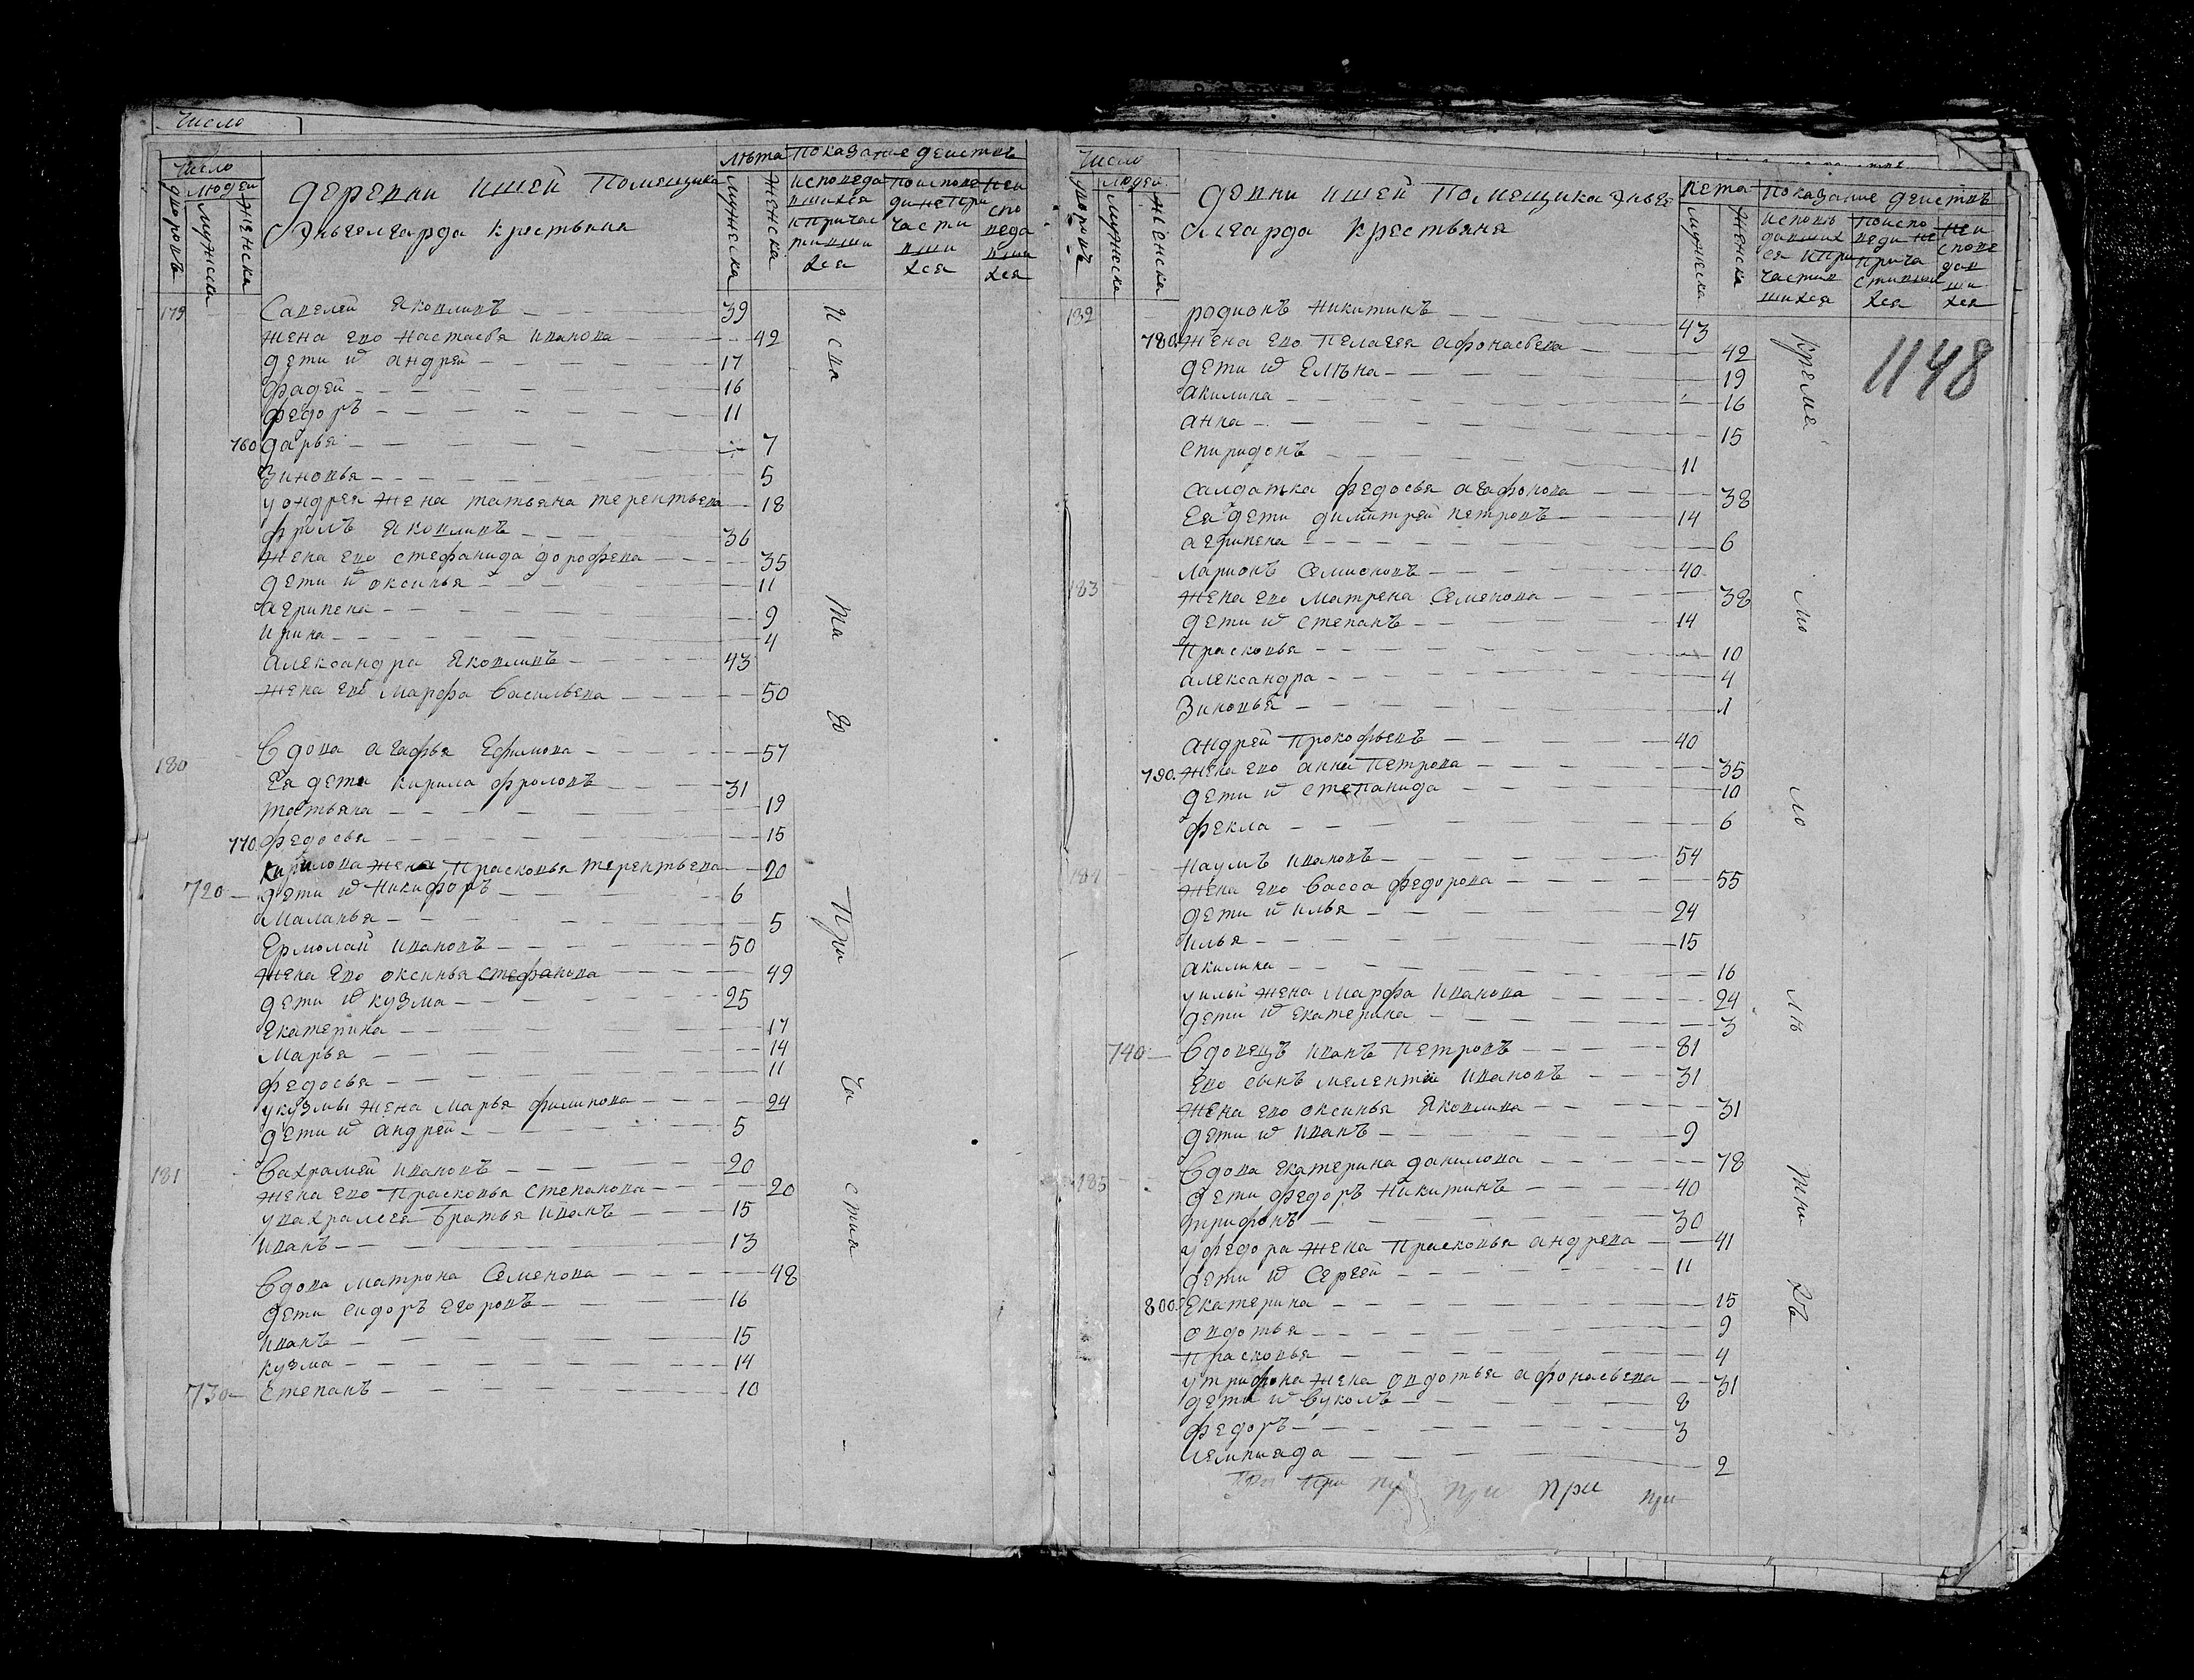 Число
Число
людей
дворовъ
мужска
женска
деревни ишей Помещика
Эньгелгарда крестьяня
лѣта
показание деиствъ
мужеска
женска
исповеда
вшихся
ипричас
тивши
хся
поиспове
динепри
части
вши
хся
неи
спо
веда
вши
хся
179 Савелей яковливъ 39
жена ево настасья иванова 42
дети ѿ андрей 17
фадей 16
федоръ 11
760 дарья 7
Зиновья 5
уондрея жена татьяна терентьева 18
фролъ яковливъ 36
жена ево стефанида дорофева 35
дети ѿ оксинья 11
агрипена 9
ирина 4
александра яковливъ 43
жена ево марфа васильева 50
180 вдова агафья Ефимова 57
Ея дети кирила фроловъ 31
татьяна 19
770 федосья 15
кирилова жена Прасковья терентьева 20
720 дети ѿ никифоръ 6
маланья 5
Ермолай ивановъ 50
жена ево оксинья стефанова 49
дети ѿ кузма 25
екатерина 17
марья 14
федосья 11
укузмы жена марья филипова 24
дети ѿ андрей 5
181 вахрамей ивановъ 20
жена ево Прасковья степанова 20
увахрамея братья иванъ 15
иванъ 13
вдова матрона Семенова 48
дети сидоръ егоровъ 16
иванъ 15
кузма 14
730 Степанъ 10
Испо
та
во
При
ча
стия
Число
людей
дворовъ
мужеска
женска
девни ишей Помещика Эньге
лгарда крестьяня
лета
показание деиствъ
мужеска
женска
исповѣ
давших
ся ипри
частив
шихся
поиспо
веди не
прича
стивши
хся
неи
спове
дав
ши
хся
1148
182 родионъ никитинъ 43
780 жена ево пелагея афонасьева 42
дети ѿ Елѣна 19
акилина 16
анна 15
спиридонъ 11
салдатка федосья агафонова 38
Ея дети димитрей петровъ 14
агрипена 6
183 ларионъ Семионовъ 40
жена ево матрена Семенова 38
дети ѿ степанъ 14
Прасковья 10
александра 4
Зиновья 1
андрей Прокофьевъ 40
790 жена ево анна Петрова 35
дети ѿ степанида 10
фекла 6
184 наумъ ивановъ 54
жена ево васса федорова 55
дети ѿ илья 24
илья 15
акилина 16
уильи жена марфа иванова 24
дети ѿ екатерина 3
740 вдовецъ иванъ Петровъ 81
Ево сынъ мелентий ивановъ 31
жена ево оксинья яковлива 31
дети ѿ иванъ 9
185 вдова екатерина данилова 78
дети федоръ никитинъ 40
трифонъ 30
уфедора жена Прасковья андрева 41
дети ѿ Сергей 11
800 Екатерина 15
овдотья 9
Прасковья 4
утрифона жена овдотья афонасьева 31
дети ѿ вуколъ 8
федоръ 3
олемпиада 2
При при при при при
време
мо
ло
лѣ
тни
хъ